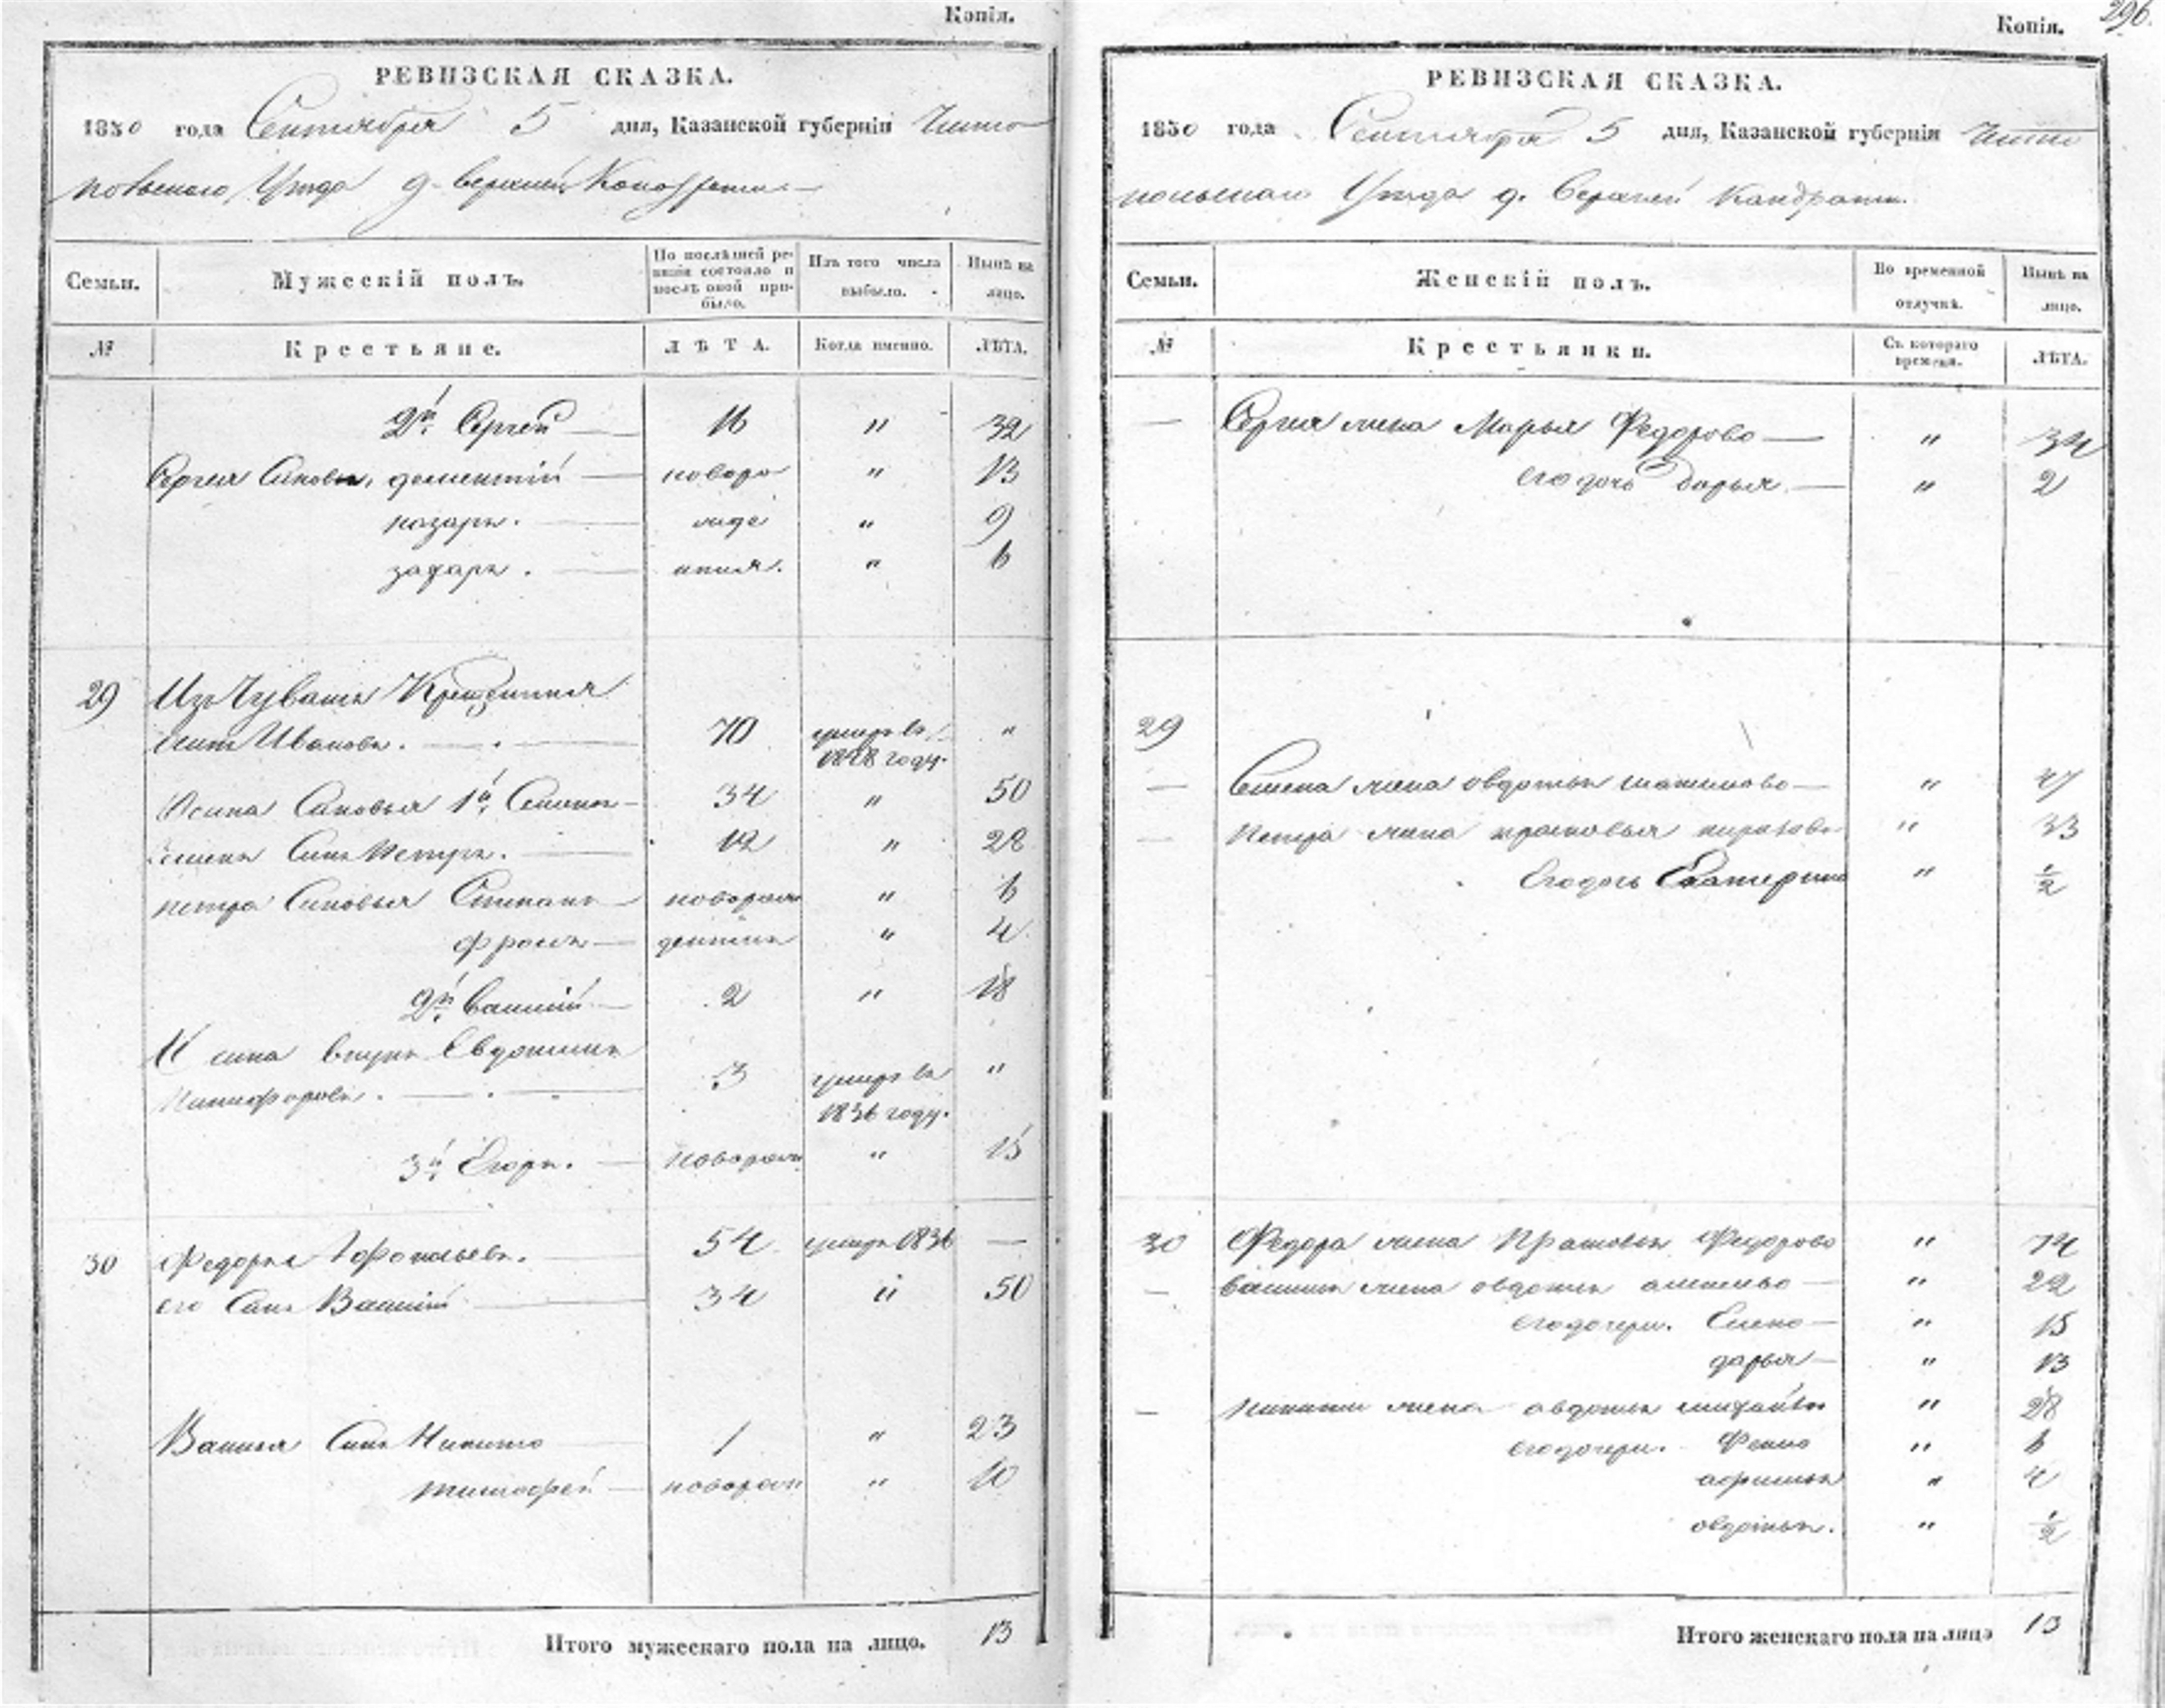 Копія.
РЕВИЗСКАЯ СКАЗКА.
1850 года Сентября 5 дня, Казанской губерніи Чисто
польскаго Уѣзда д. верхней
Семьи. Мужескій полъ. По послѣдней ревизіи состояло и послѣ оной прибыло. Изъ того числа выбыло. Нынѣ на лицо.
№ Крестьяне. ЛѢТА. Когда именно. ЛѢТА.
2й Сергей 16 " 32
Сергея Сыновья, дементій новоро 13
назаръ. жде " 9
захаръ. нныя. " 6
29 Изъ Чувашъ Крещенныя
Ивановъ. 70 умеръ въ 1848 году. "
Осипа Сыновья 1й Семенъ 34 " 50
Семена Сынъ Петръ. 12 " 28
петра Сыновья Степанъ новорож " 6
фролъ денныя " 4
2й Василій 2 " 18
внукъ Евдокимъ
Никифоровъ. 3 умеръ въ "
1836 году.
3й Егоръ. новорож " 15
30 Федоръ 54 умеръ 1836 —
его Сынъ Василій 34 " 50
Василья Сынъ Никита 1 " 23
тимофей новорож " 10
Итого мужескаго пола на лицо. 13
296.
Копія.
РЕВИЗСКАЯ СКАЗКА.
1850 года Сентября 5 дня, Казанской губерніи Чисто
польскаго Уѣзда д. Верхней Кандраты.
Семьи. Женскій полъ. Во временной отлучкѣ. Нынѣ на лицо.
№ Крестьянки. Съ котораго времени. ЛѢТА.
— Сергея жена Марья Федорова " 34
его дочь Дарья. " 2
29
— Семена жена овдотья " 47
— Петра жена прасковья " 33
Его дочь Екатерина " ½
30 Федора жена Прасковья Федорова " 74
— Василья жена овдотья " 22
его дочери. Елена " 15
дарья " 13
— Никиты жена авдотья " 28
его дочери. Фекла " 6
афимья " 4
овдотья. " ½
Итого женскаго пола на лицо 13